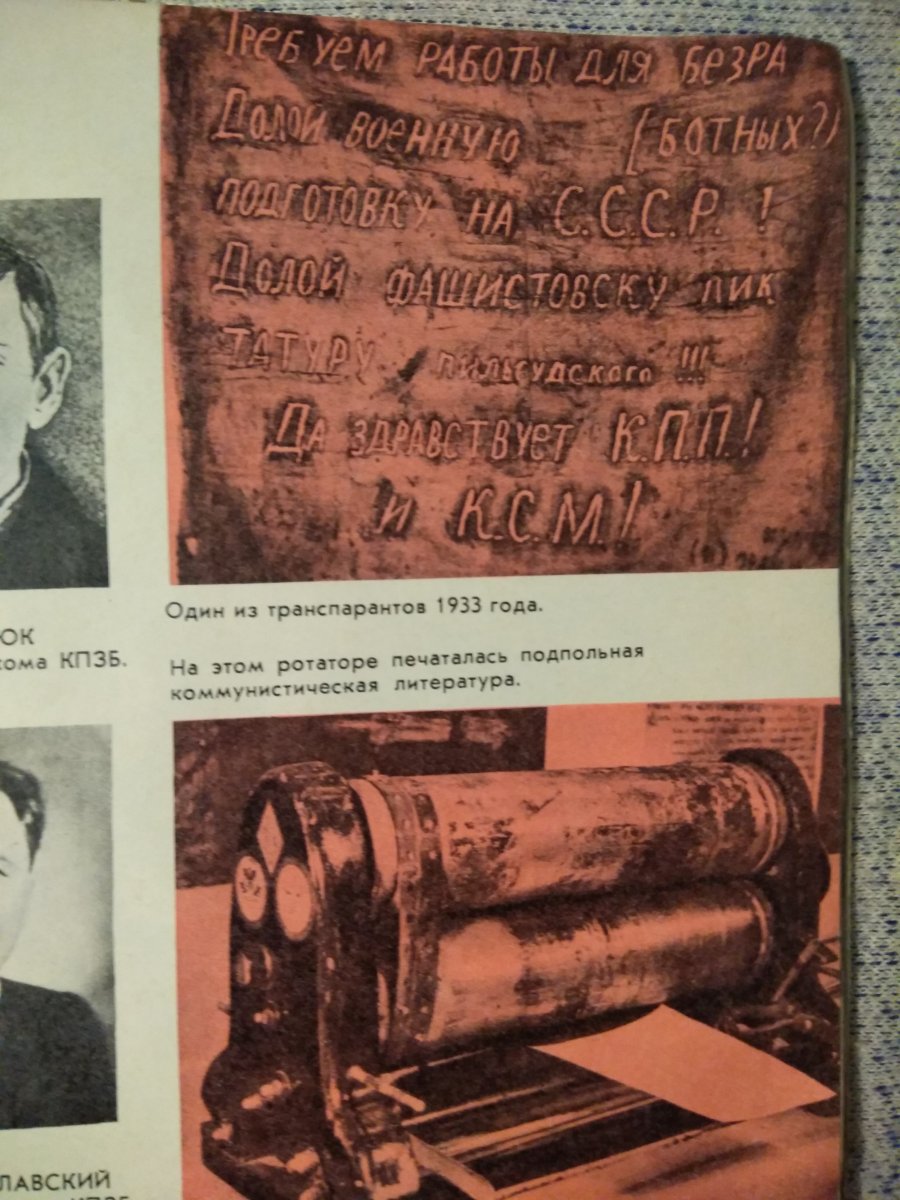 Требуем работы для безра
Долой военную (ботных?)
подготовку на С.С.С.Р. !
Долой фашистовску лик
татуру пильсудского !!!
Да здравствует К.П.П.!
и К.С.М.!
Один из транспарантов 1933 года.
На этом ротаторе печаталась подпольная
коммунистическая литература.
ЮК
кома КПЗБ.
ЛАВСКИЙ